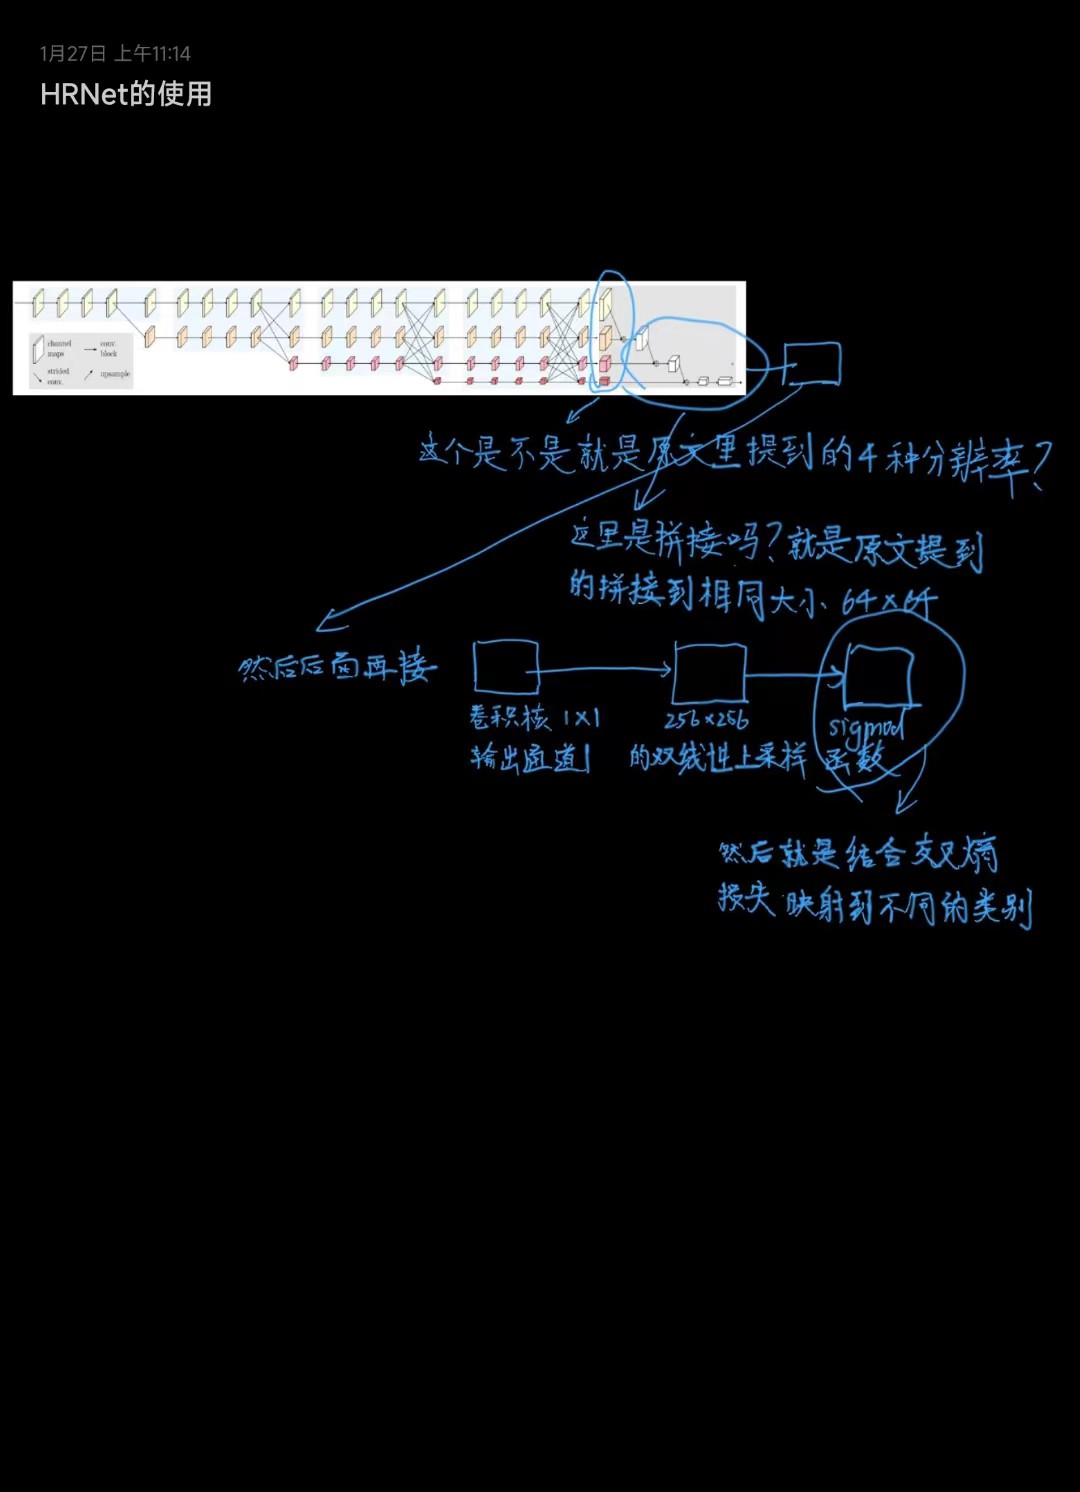 1月27日 上午11:14
HRNet的使用
channel maps
conv. block
strided conv.
upsample
这个是不是就是原文里提到的4种分辨率？
这里是拼接吗？就是原文提到
的拼接到相同大小、64×64
然后后面再接
卷积核 1×1
输出通道1
256×256
的双线性上采样
sigmod
函数
然后就是结合交叉熵
损失 映射到不同的类别